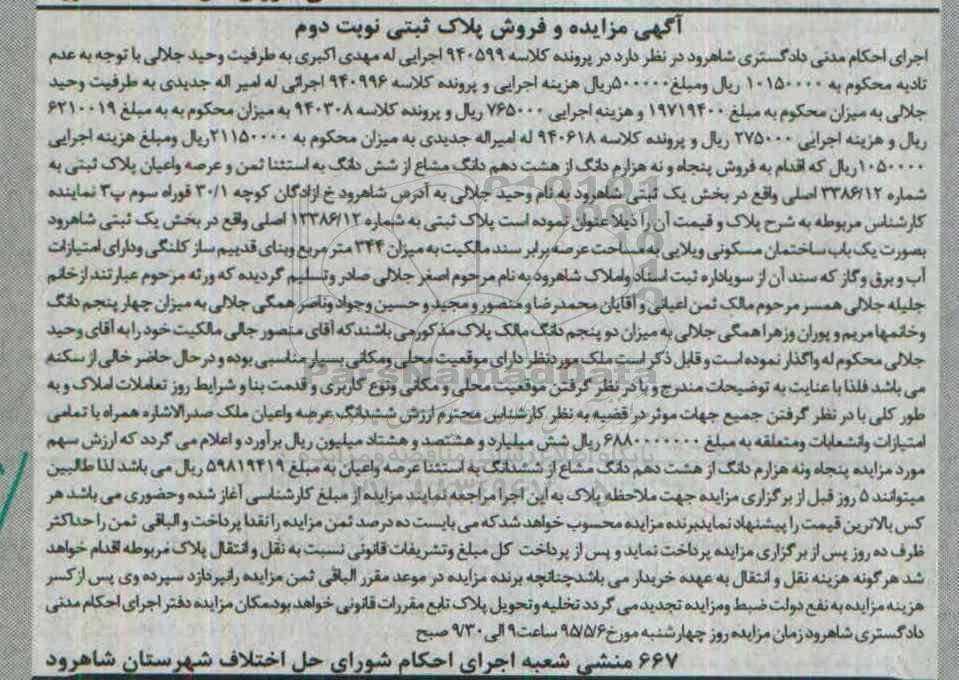 آگهی مزایده و فروش پلاک ثبتی نوبت دوم
اجرای احکام مدنی دادگستری شاهرود در نظر دارد در پرونده کلاسه ۹۴۰۵۹۹ اجرایی له مهدی اکبری به طرفیت وحید جلالی با توجه به عدم
تادیه محکوم به ۱۰۱۵۰۰۰۰ ریال ومبلغ۵۰۰۰۰۰ریال هزینه اجرایی و پرونده کلاسه ۹۴۰۹۹۶ اجرائی له امیر اله جدیدی به طرفیت وحید
جلالی به میزان محکوم به مبلغ ۱۹۷۱۹۴۰۰ و هزینه اجرایی ۷۶۵۰۰۰ ریال و پرونده کلاسه ۹۴۰۳۰۸ به میزان محکوم به به مبلغ ۶۲۱۰۰۱۹
ریال و هزینه اجرایی ۲۷۵۰۰۰ ریال و پرونده کلاسه ۹۴۰۶۱۸ له امیراله جدیدی به میزان محکوم به ۲۱۱۵۰۰۰۰ریال ومبلغ هزینه اجرایی
۱۰۵۰۰۰۰ریال که اقدام به فروش پنجاه و نه هزارم دانگ از هشت دهم دانگ مشاع از شش دانگ به استثنا ثمن و عرصه واعیان پلاک ثبتی به
شماره ۳۳۸۶/۱۲ اصلی واقع در بخش یک ثبتی شاهرود به نام وحید جلالی به آدرس شاهرود خ ازادگان کوچه ۳۰/۱ قوراه سوم پ۳ نماینده
کارشناس مربوطه به شرح پلاک و قیمت آن را ذیلا عنوان نموده است پلاک ثبتی به شماره ۱۳۳۸۶/۱۲ اصلی واقع در بخش یک ثبتی شاهرود
بصورت یک باب ساختمان مسکونی ویلایی با مساحت عرصه برابر سند مالکیت به میزان ۳۴۴ متر مربع وبنای قدییم ساز کلنگی ودارای امتیازات
آب و برق وگاز که سند آن از سویاداره ثبت اسناد واملاک شاهرود به نام مرحوم اصغر جلالی صادر وتسلیم گردیده که ورثه مرحوم عبارتند از خانم
جلیله جلالی همسر مرحوم مالک ثمن اعیانی و آقایان محمدرضا و منصور و مجید و حسین وجواد وناصر همگی جلالی به میزان چهار پنجم دانگ
وخانمها مریم و پوران وزهرا همگی جلالی به میزان دو پنجم دانگ مالک پلاک مذکور می باشند که آقای منصور جالی مالکیت خود را به آقای وحید
جلالی محکوم له واگذار نموده است و قابل ذکر است ملک مورد نظر دارای موقعیت محلی ومکانی بسیار مناسبی بوده و در حال حاضر خالی از سکنه
می باشد فلذا با عنایت به توضیحات مندرج و با در نظر گرفتن موقعیت محلی و مکانی ونوع کاربری و قدمت بنا و شرایط روز تعاملات املاک و به
طور کلی با در نظر گرفتن جمیع جهات موثر در قضیه به نظر کارشناس محترم ارزش ششدانگ عرصه واعیان ملک صدرالاشاره همراه با تمامی
امتیازات وانشعابات ومتعلقه به مبلغ ۶۸۸۰۰۰۰۰۰۰ ریال شش میلیارد و هشتصد و هشتاد میلیون ریال برآورد و اعلام می گردد که ارزش سهم
مورد مزایده پنجاه ونه هزارم دانگ از هشت دهم دانگ مشاع از ششدانگ به استثنا عرصه واعیان به مبلغ ۵۹۸۱۹۴۱۹ ریال می باشد لذا طالبین
میتوانند ۵ روز قبل از برگزاری مزایده جهت ملاحظه پلاک به این اجرا مراجعه نمایند مزایده از مبلغ کارشناسی آغاز شده وحضوری می باشد هر
کس بالاترین قیمت را پیشنهاد نماید برنده مزایده محسوب خواهد شد که می بایست ده درصد ثمن مزایده را نقدا پرداخت و الباقی ثمن را حداکثر
ظرف ده روز پس از برگزاری مزایده پرداخت نماید و پس از پرداخت کل مبلغ وتشریفات قانونی نسبت به نقل وانتقال پلاک مربوطه اقدام خواهد
شد هرگونه هزینه نقل و انتقال به عهده خریدار می باشدچنانچه برنده مزایده در موعد مقرر الباقی ثمن مزایده رانپردازد سپرده وی پس از کسر
هزینه مزایده به نفع دولت ضبط ومزایده تجدید می گردد تخلیه وتحویل پلاک تابع مقررات قانونی خواهد بود.مکان مزایده دفتر اجرای احکام مدنی
دادگستری شاهرود زمان مزایده روز چهارشنبه مورخ۹۵/۵/۶ ساعت۹ الی ۹/۳۰ صبح
۶۶۷ منشی شعبه اجرای احکام شورای حل اختلاف شهرستان شاهرود
ParsNamadData